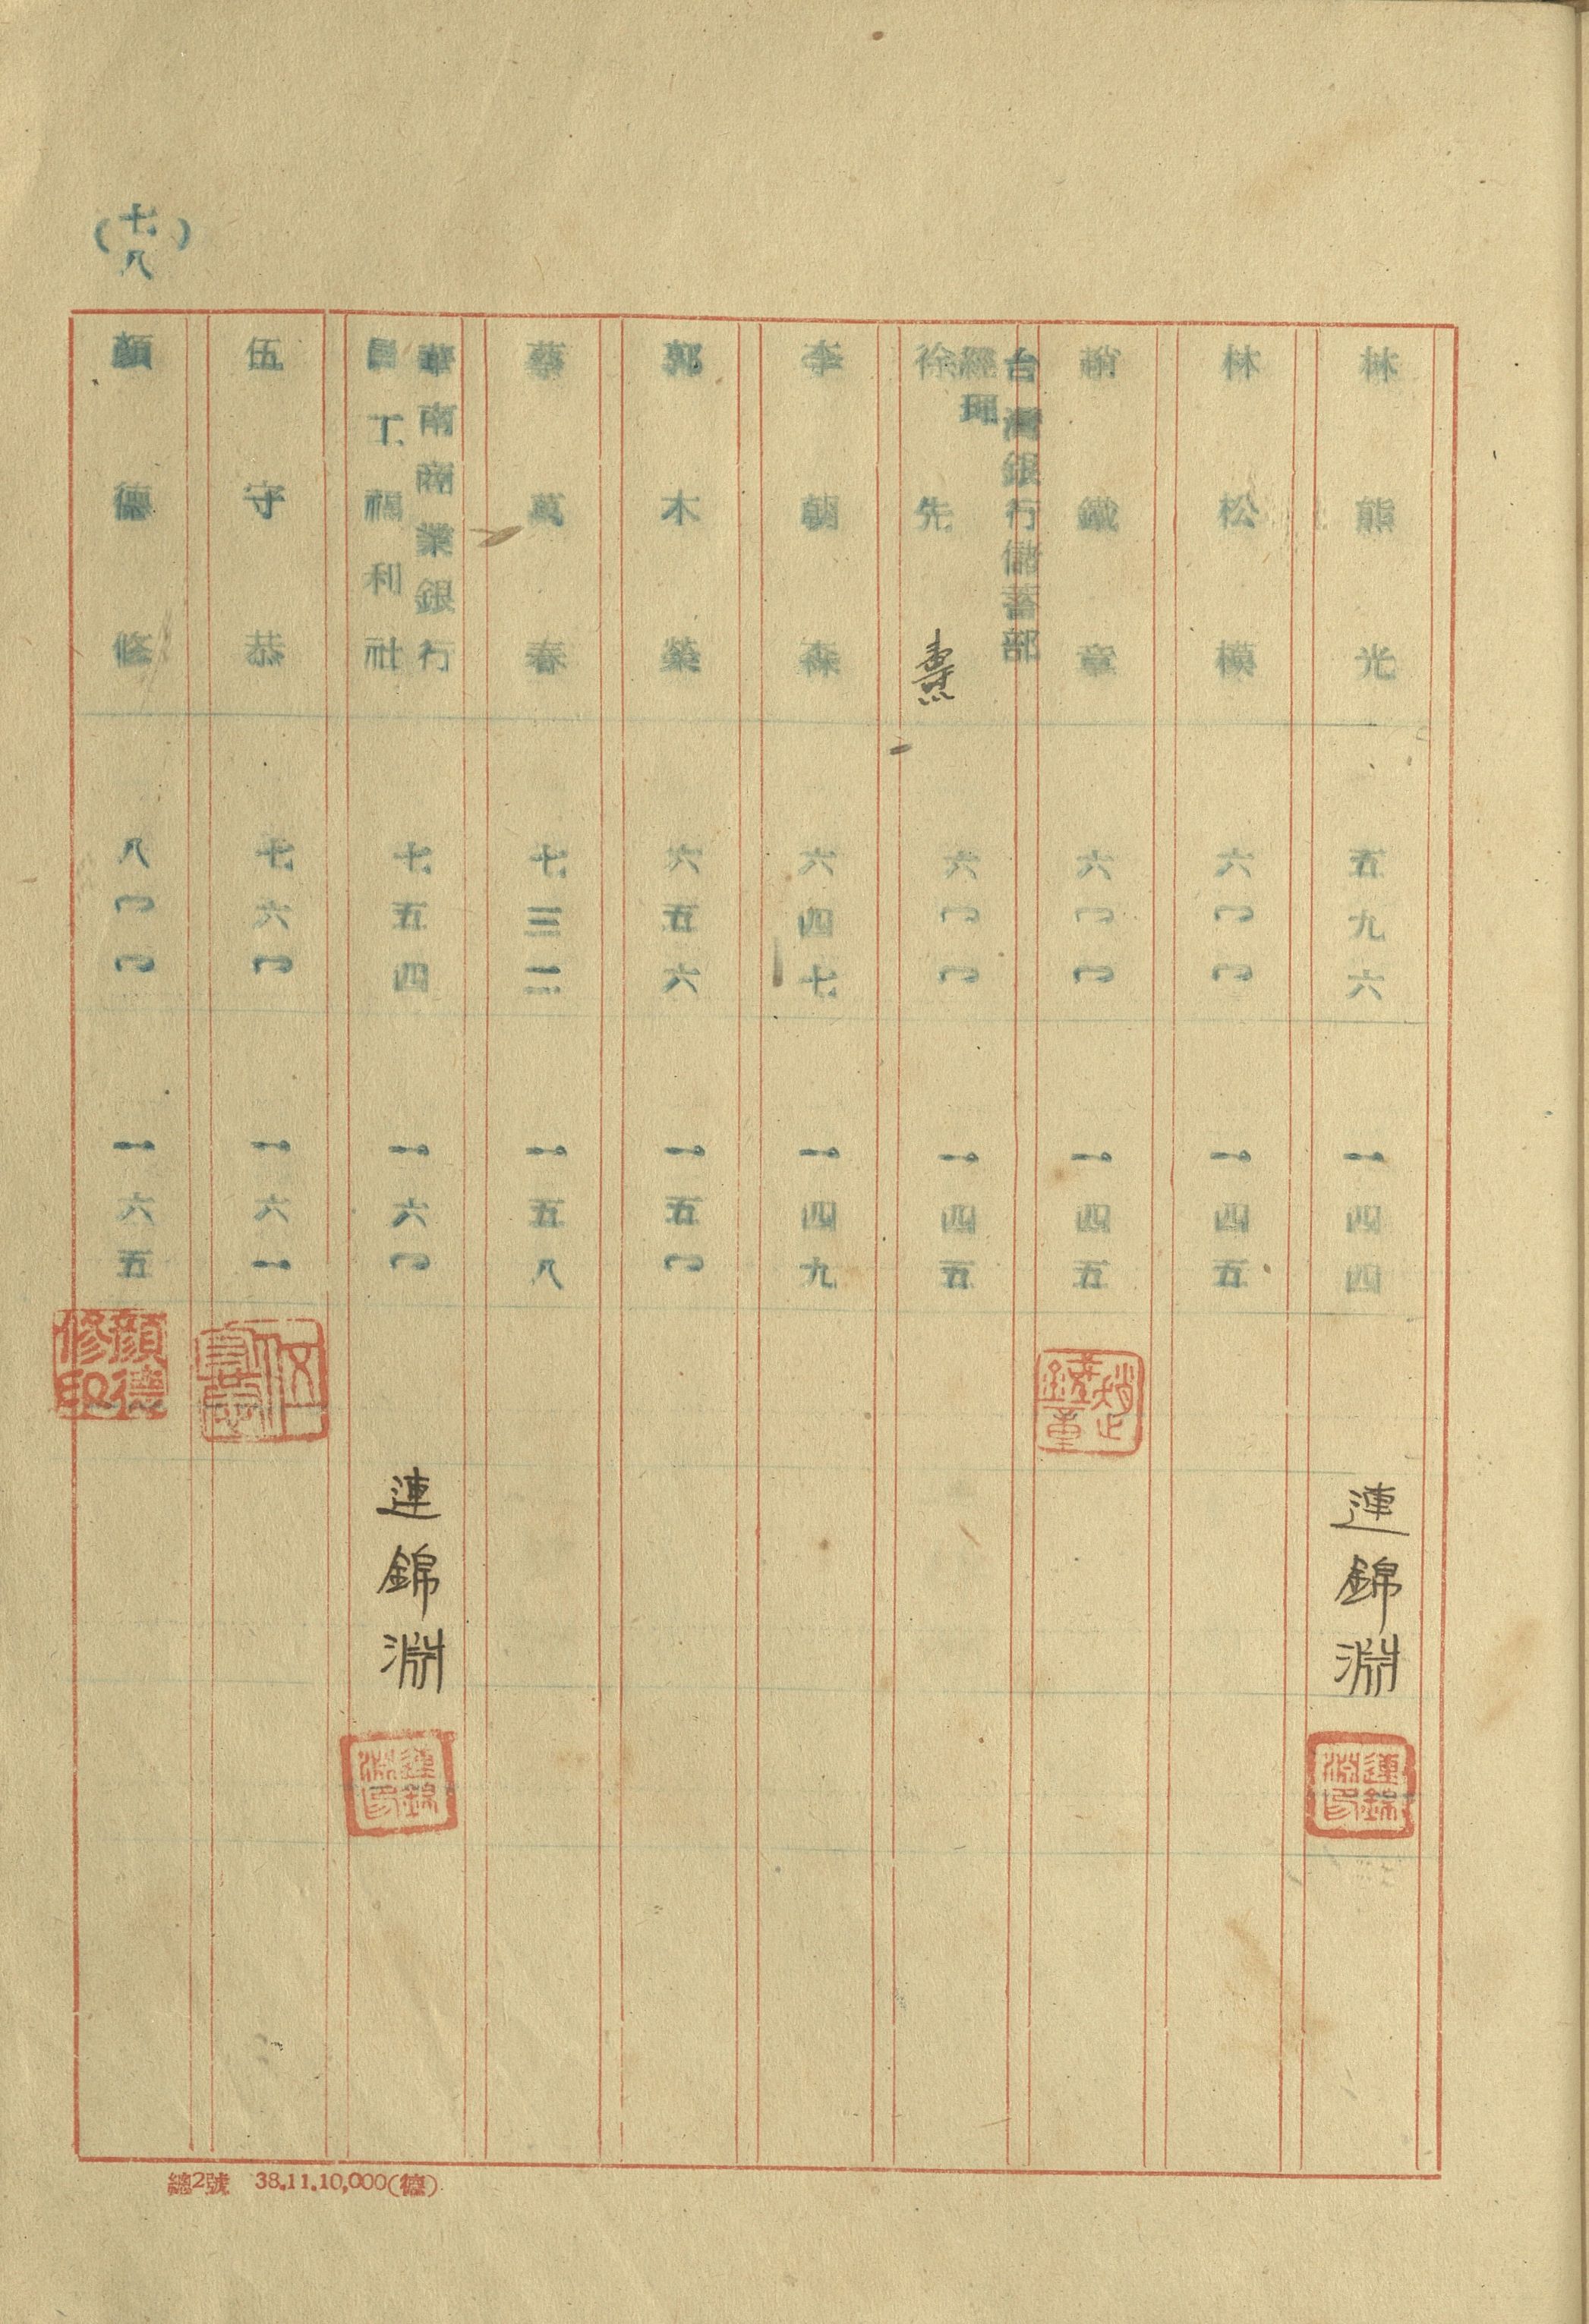 林熊光 五九六 一四四 連錦淵 連錦淵印
林松模 六〇〇 一四五
趙鐵章 六〇〇 一四五 趙鐵章
台灣銀行儲蓄部
經理
徐先燾 六〇〇 一四五
李朝森 六四七 一四九
郭木榮 六五六 一五〇
蔡萬春 七三二 一五八
華南商業銀行
員工福利社 七五四 一六〇 連錦淵 連錦淵印
伍守恭 七六〇 一六一 伍守恭
顏德修 八〇〇 一六五 顏德修印
(七八)
總2號 38.11.10,000(德)